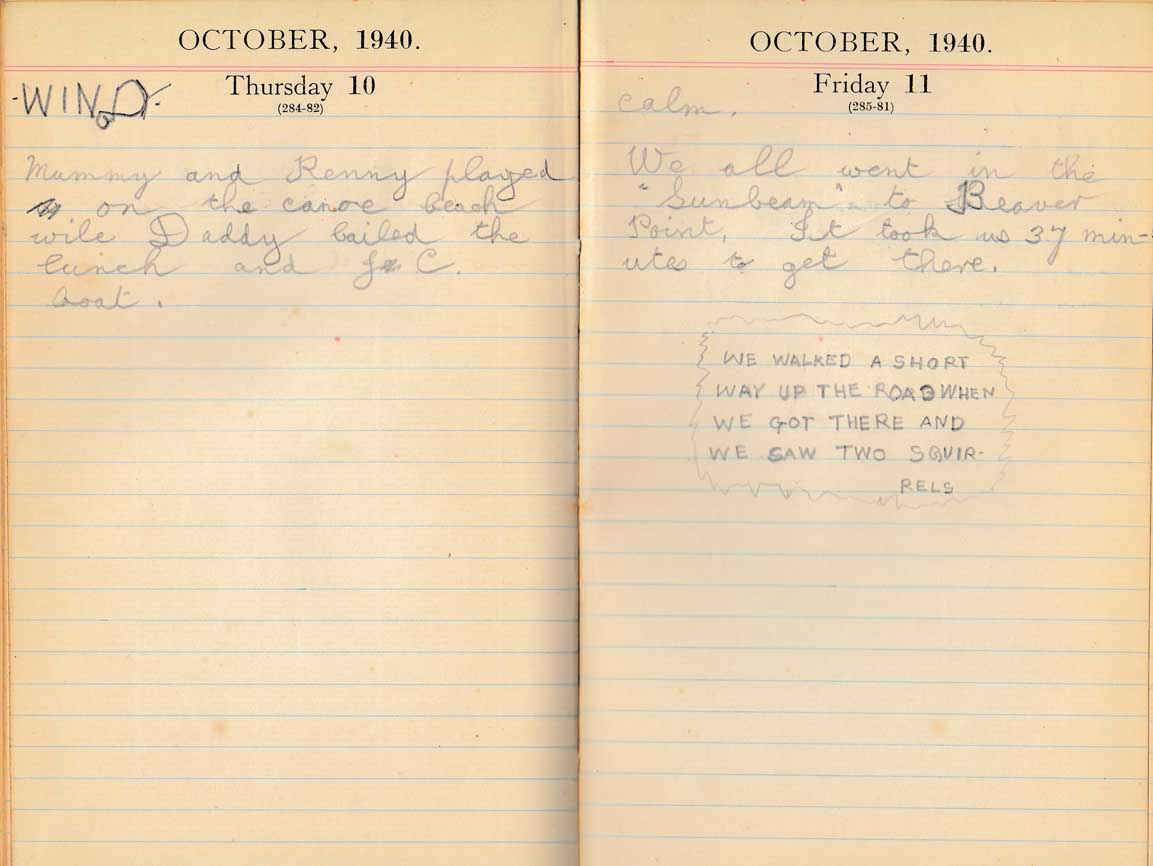 OCTOBER, 1940.
Thursday 10
(284-82)
WINDY.
Mummy and Penny played
on the canoe beach
wile Daddy bailed the
lunch and C.
boat.
OCTOBER, 1940.
Friday 11
(285-81)
calm.
We all went in the
"Sunbeam" to Beaver
Point. It took us 37 min-
utes to get there.
WE WALKED A SHORT
WAY UP THE ROAD WHEN
WE GOT THERE AND
WE SAW TWO SQUIR-
RELS